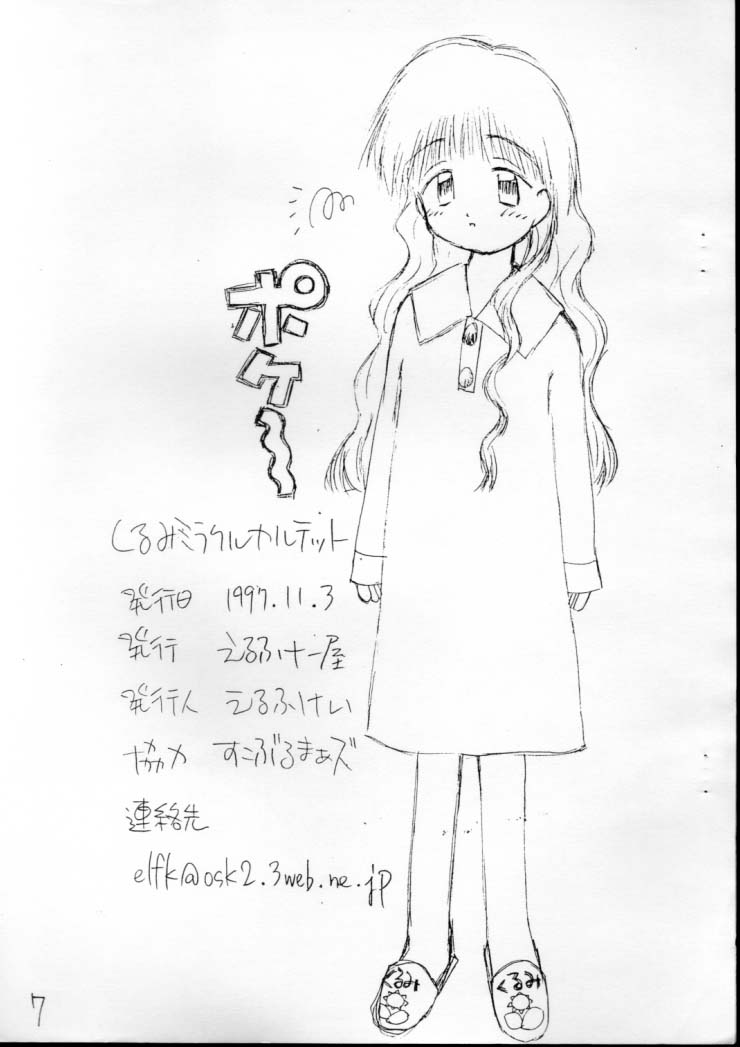 ポケ〜
くるみミラクルカルテット
発行日 1997.11.3
発行 えるふけー屋
発行人 えるふけい
協力 すこぶるまぁズ
連絡先
elfk@osk2.3web.ne.jp
くるみ くるみ
7